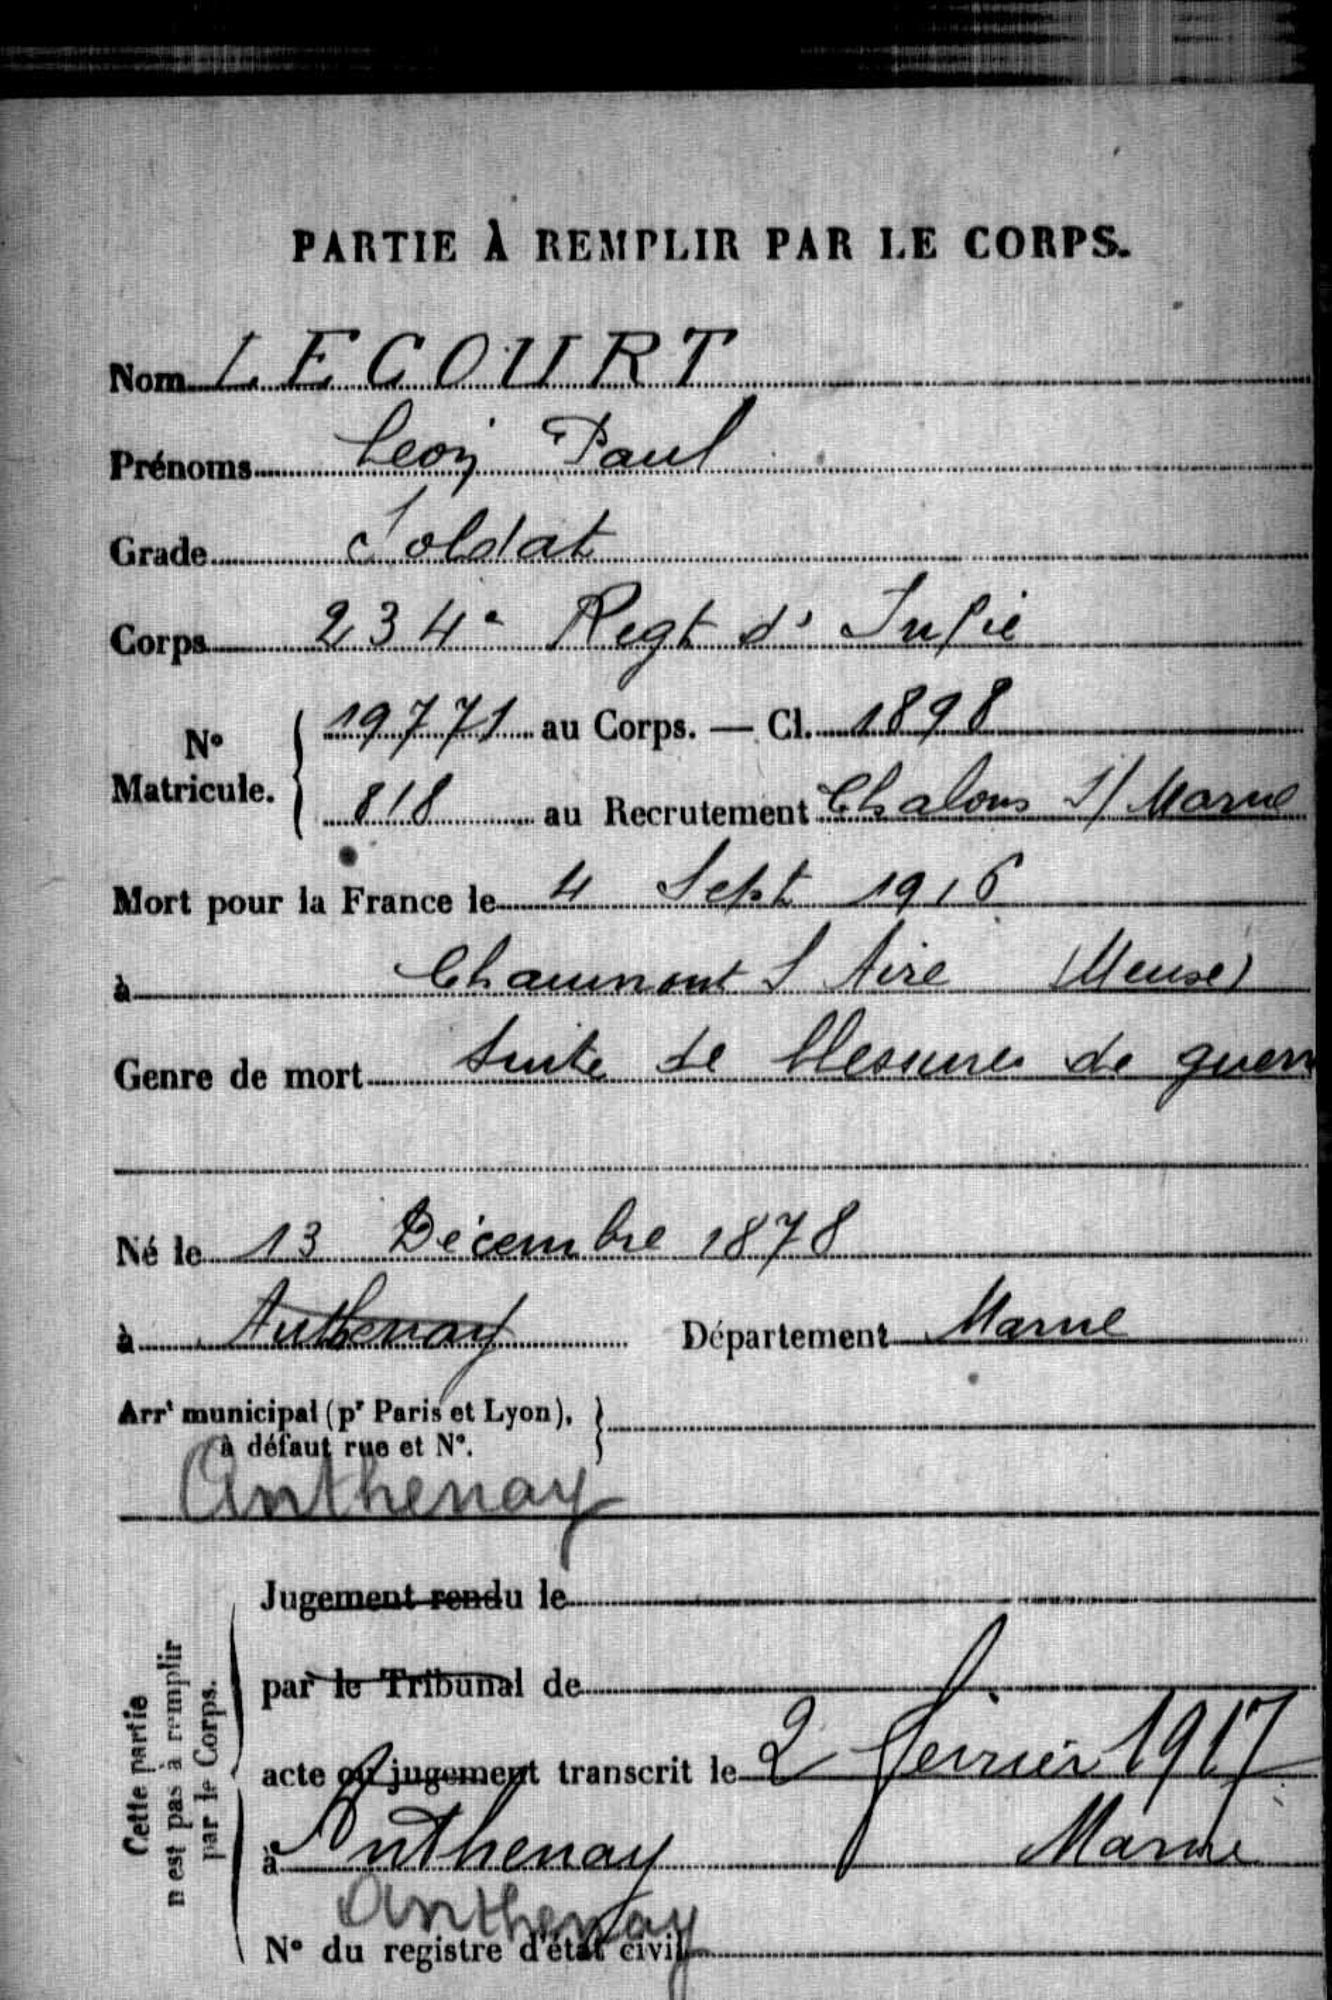 PARTIE À REMPLIR PAR LE CORPS.
Nom LECOURT
Prénoms Léon Paul
Grade Soldat
Corps 234e Regt d' Infie
No Matricule. { 19771 au Corps. — Cl. 1898
818 au Recrutement Chalons S/ Marne
Mort pour la France le 4 Sept 1916
à Chaumont S Aire (Meuse)
Genre de mort Suite de blessures de guerre
Né le 13 Décembre 1878
à Anthenay Département Marne
Arrt municipal (pr Paris et Lyon),
à défaut rue et No.
Anthenay
Cette partie
n'est pas à remplir
par le Corps.
Jugement rendu le
par le Tribunal de
acte ou jugement transcrit le 2 février 1917
à Anthenay Marne
Anthenay
No du registre d'état civil